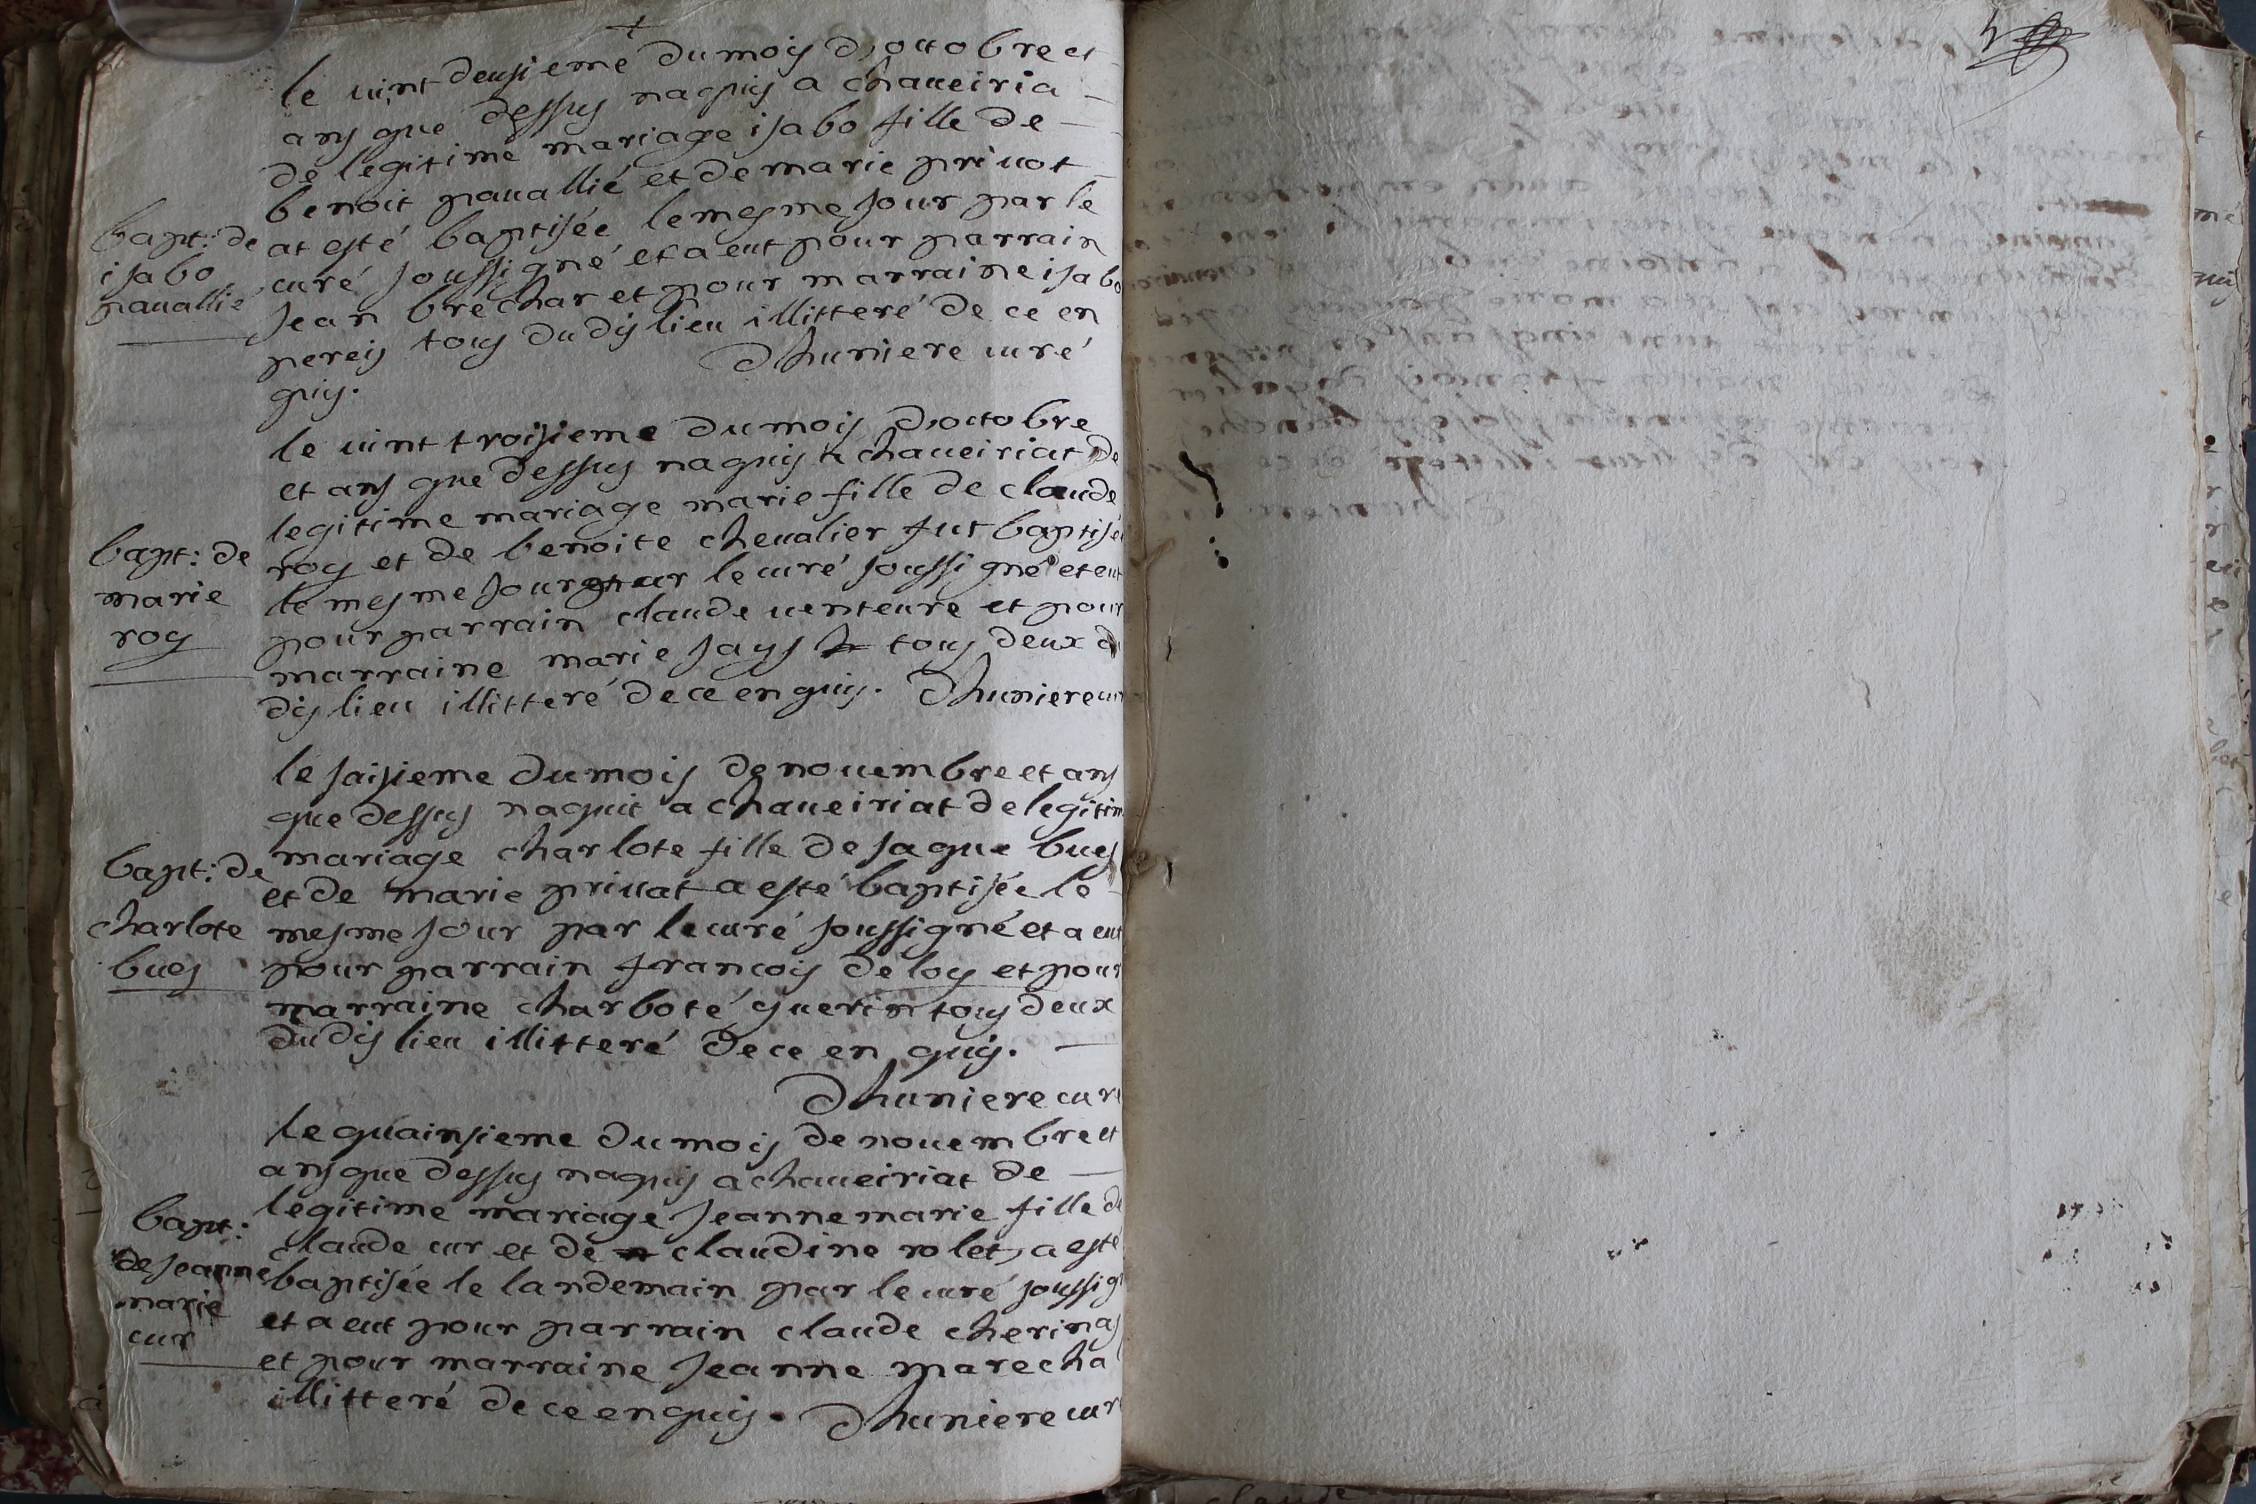 le uint deusieme du mois d'octobre et
ans que dessus naquis a chaueiria
de legitime mariage isabo fille de
benoit pauallié et de marie priuot
at esté baptisée le mesme jour par le
curé soussigné et a eut pour parrain
jean brechar et pour marraine isabo
pereis tous du dis lieu illitteré de ce en
quis.
dhuniere curé
bapt: de
isabo
pauallié
le uint troisieme du mois d'octobre
et ans que dessus naquis a chaueiriat de
legitime mariage marie fille de claude
roy et de benoite cheualier fut baptisée
le mesme jour par le curé soussigné et eut
pour parrain claude uenteure et pour
marraine marie jays tous deux du
dis lieu illitteré de ce en quis. dhuniere cur
bapt: de
marie
roy
le saisieme du mois de nouembre et ans
que dessus naquit a chaueiriat de legitim
mariage charlote fille de jaque bues
et de marie priuat a esté baptisée le
mesme jour par le curé soussigné et a eut
pour parrain francois de loy et pour
marraine charlote guerin tous deux
du dis lieu illitteré de ce en quis.
dhuniere curé
bapt: de
charlote
bues
le quainsieme du mois de nouembre et
ans que dessus naquis a chaueiriat de
legitime mariage jeanne marie fille de
claude cur et de claudine rolet, a esté
baptisée le landemain par le curé soussig
et a eut pour parrain claude cherinas
et pour marraine jeanne marecha
illitteré de ce en quis. dhuniere cur
bapt:
de jeanne
marie
cur